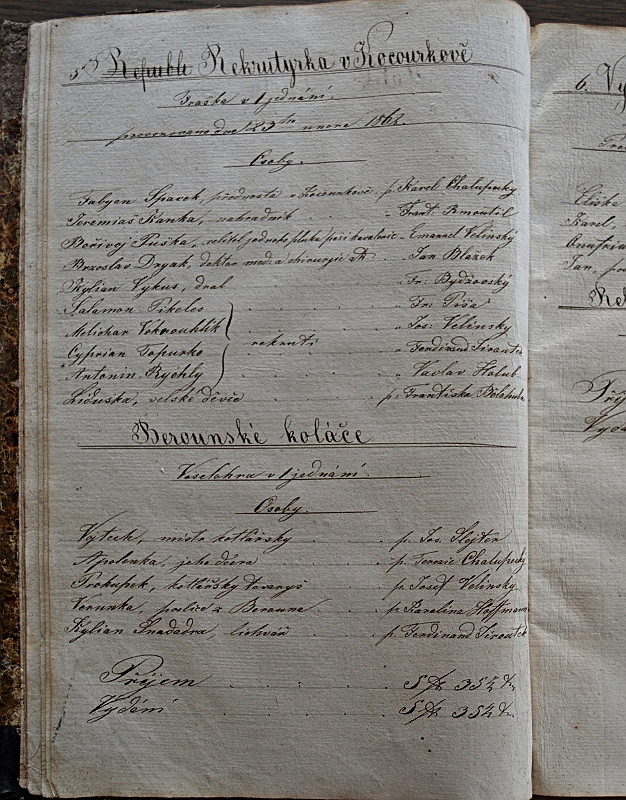 Rekrutýrka v Kocourkově
Fraška v 1 jednání.
provozováno dne 23ho února 1862.
Osoby.
Fabyan Spavek, přednosta v Kocourkově p. Karel Chalupecký
Jeremiáš Kanka, náhradník „ Frant.
Bořivoj Puška, velitel jednoho pluku při kavalerii „ Emanuel Velinský
Brzoslav Dryák, doktor med. a chirurgie „ Jan Blažek
Kylian Výkus, dráb „ Fr. Bydžovský
Salamon Tiketes „ Fr. Píša
Melichar Vokrouhlík „ Jos. Velinský
Cyprian Topůrko rekruti „ Ferdinand Siroutek
Antonín Rychlý „ Václav Holub
Liduška, selské děvče p. Františka
Berounské koláče
Veselohra v 1 jednání.
Osoby.
Vojtěch, mistr kotlářský p. Jos. Slejtor
Apolenka, jeho dcera p. Terezie Chalupecký
Prokůpek, kotlářský tovaryš p. Josef Velinský
Verunka, z Berouna p. Karolina Hoffmanova
Kylian Snadadra, lichvář p. Ferdinand Siroutek
Příjem 5 35½
Vydání 5 35½
6.